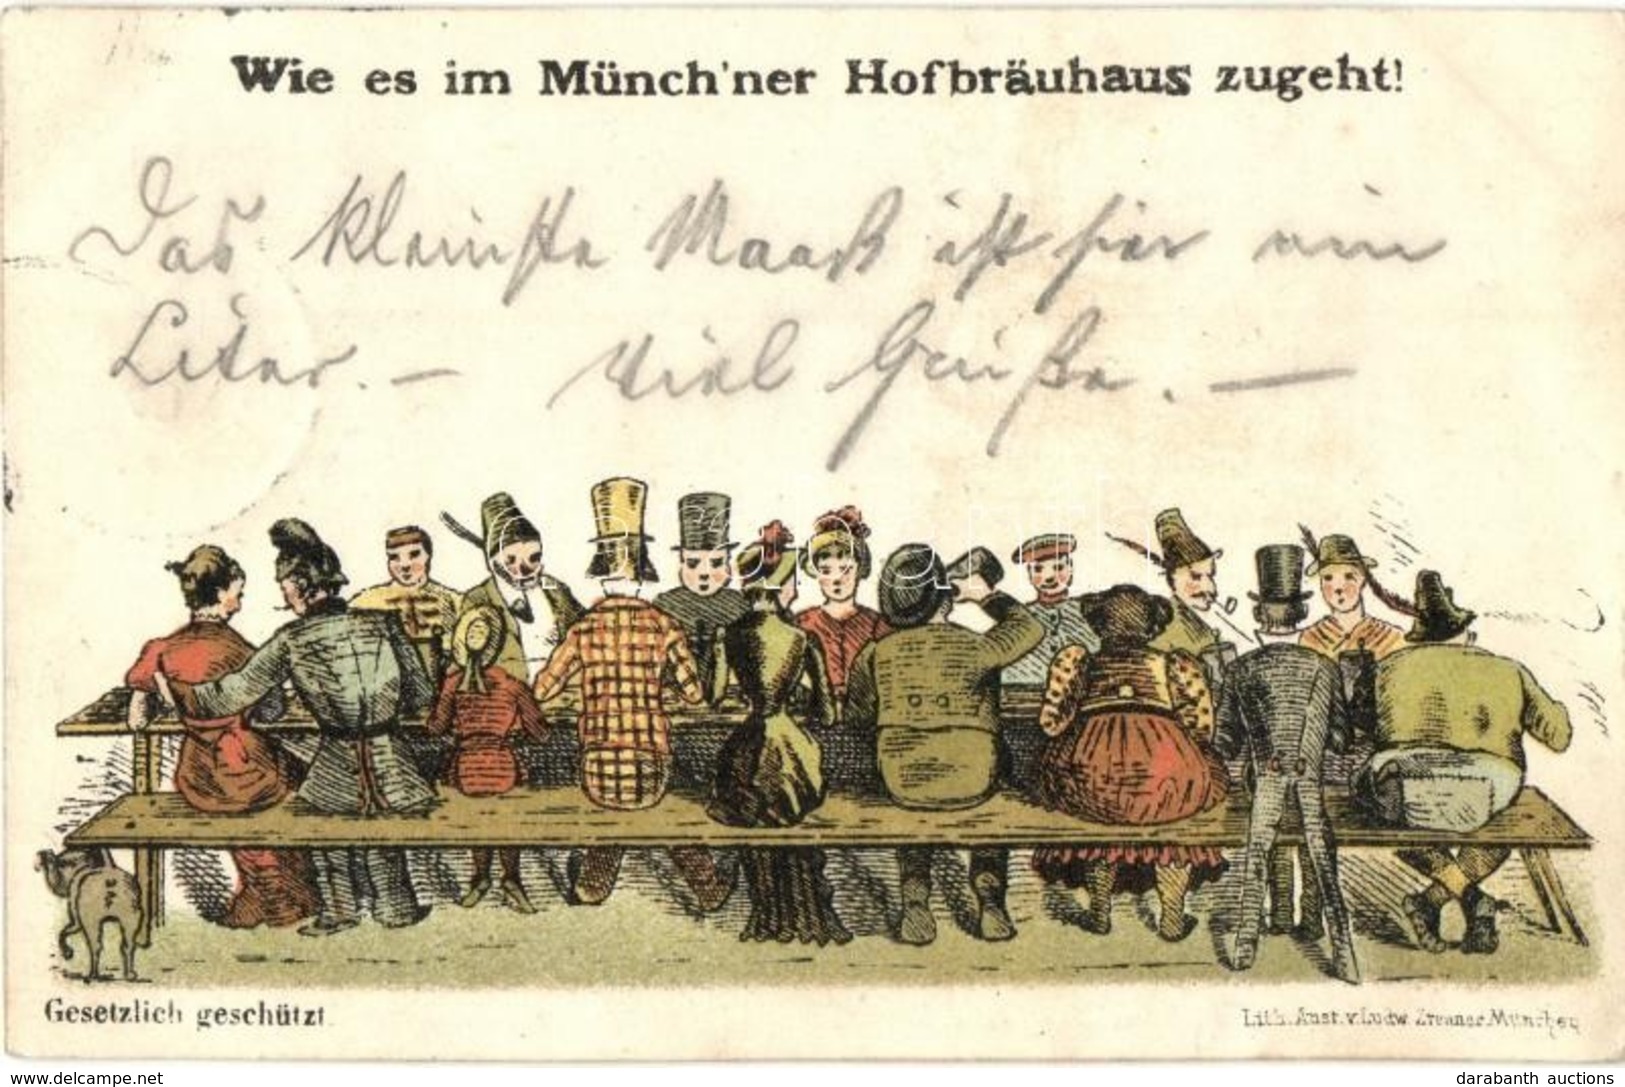 Wie es im Münch'ner Hofbräuhaus zugeht!
Das kleinste Maaß ist hier ein
Liter. — Viel Grüße. —
Gesetzlich geschützt
Lith. Anst. v. Ludw. Zrenner München
www.delcampe.net
darabanth auctions